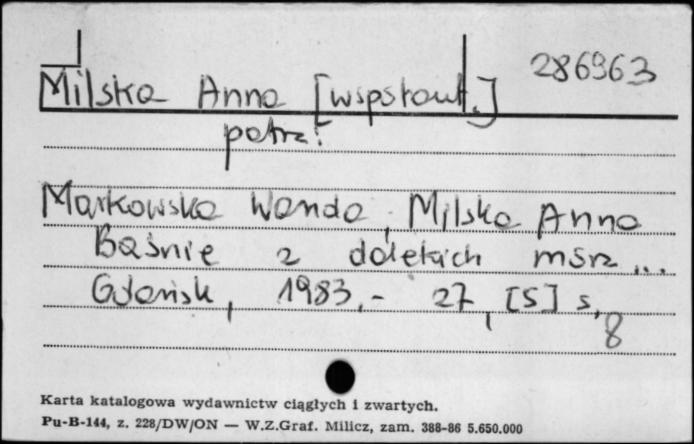 286963
Milska Anna [wspłaut.]
patrz:
Markowska Wanda, Milska Anna
Baśnie z dalekich mórz...
Gdańsk, 1983.- 27, [5] s,
8
Karta katalogowa wydawnictw ciągłych i zwartych.
Pu-B-144, z. 228/DW/ON — W.Z.Graf. Milicz, zam. 388-86 5.650.000